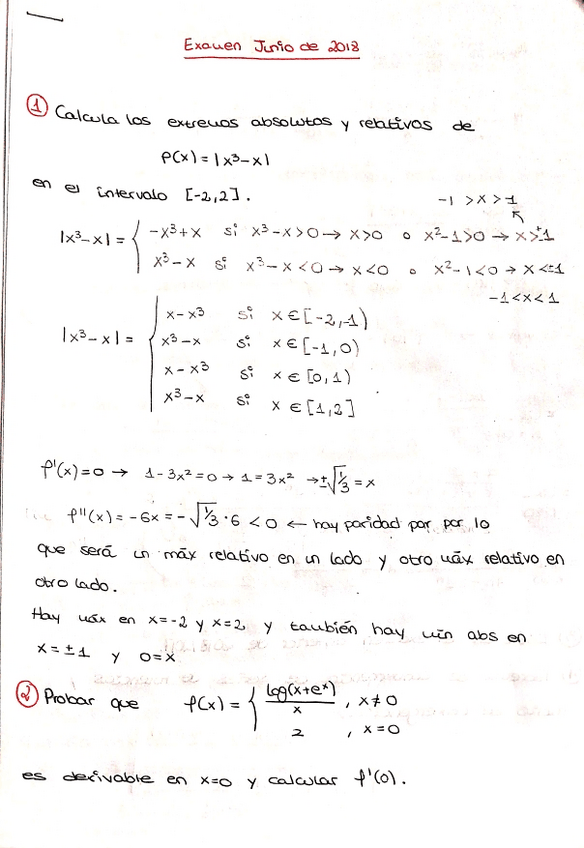 Examen Junio de 2018
① Calcula los extremos absolutos y relativos de
f(x) = |x³-x|
en el intervalo [-2,2].
-1 > x > 1
|x³-x| = { -x³+x si x³-x>0 → x>0 o x²-1>0 → x>±1
x³-x si x³-x<0 → x<0 o x²-1<0 → x<±1
-1<x<1
|x³-x| = { x-x³ si x∈[-2,-1)
x³-x si x∈[-1,0)
x-x³ si x∈[0,1)
x³-x si x∈[1,2]
f'(x)=0 → 1-3x²=0 → 1=3x² → ±√1/3 = x
f''(x) = -6x = -√1/3·6 <0 ← hay paridad por por lo
que será un máx relativo en un lado y otro máx relativo en
otro lado.
Hay máx en x=-2 y x=2, y también hay mín abs en
x=±1 y 0=x
② Probar que f(x) = { log(x+eˣ)/x , x≠0
2 , x=0
es derivable en x=0 y calcular f'(0).